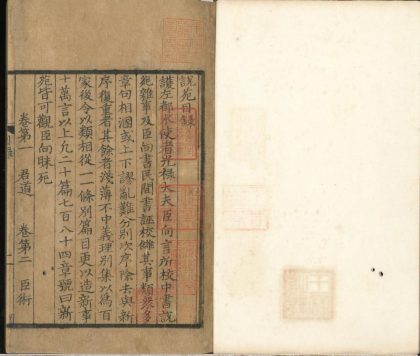 說苑目錄
護左都水使者光祿大夫臣向言所校中書說
苑雜事及臣向書民間書誣校讎其事類衆多
章句相溷或上下謬亂難分別次序除去與新
序復重者其餘者淺薄不中義理別集以爲百
家後令以類相從一一條別篇目更以造新事
十萬言以上凡二十篇七百八十四章號曰新
苑皆可觀臣向昧死
卷第一 君道 卷第二 臣術